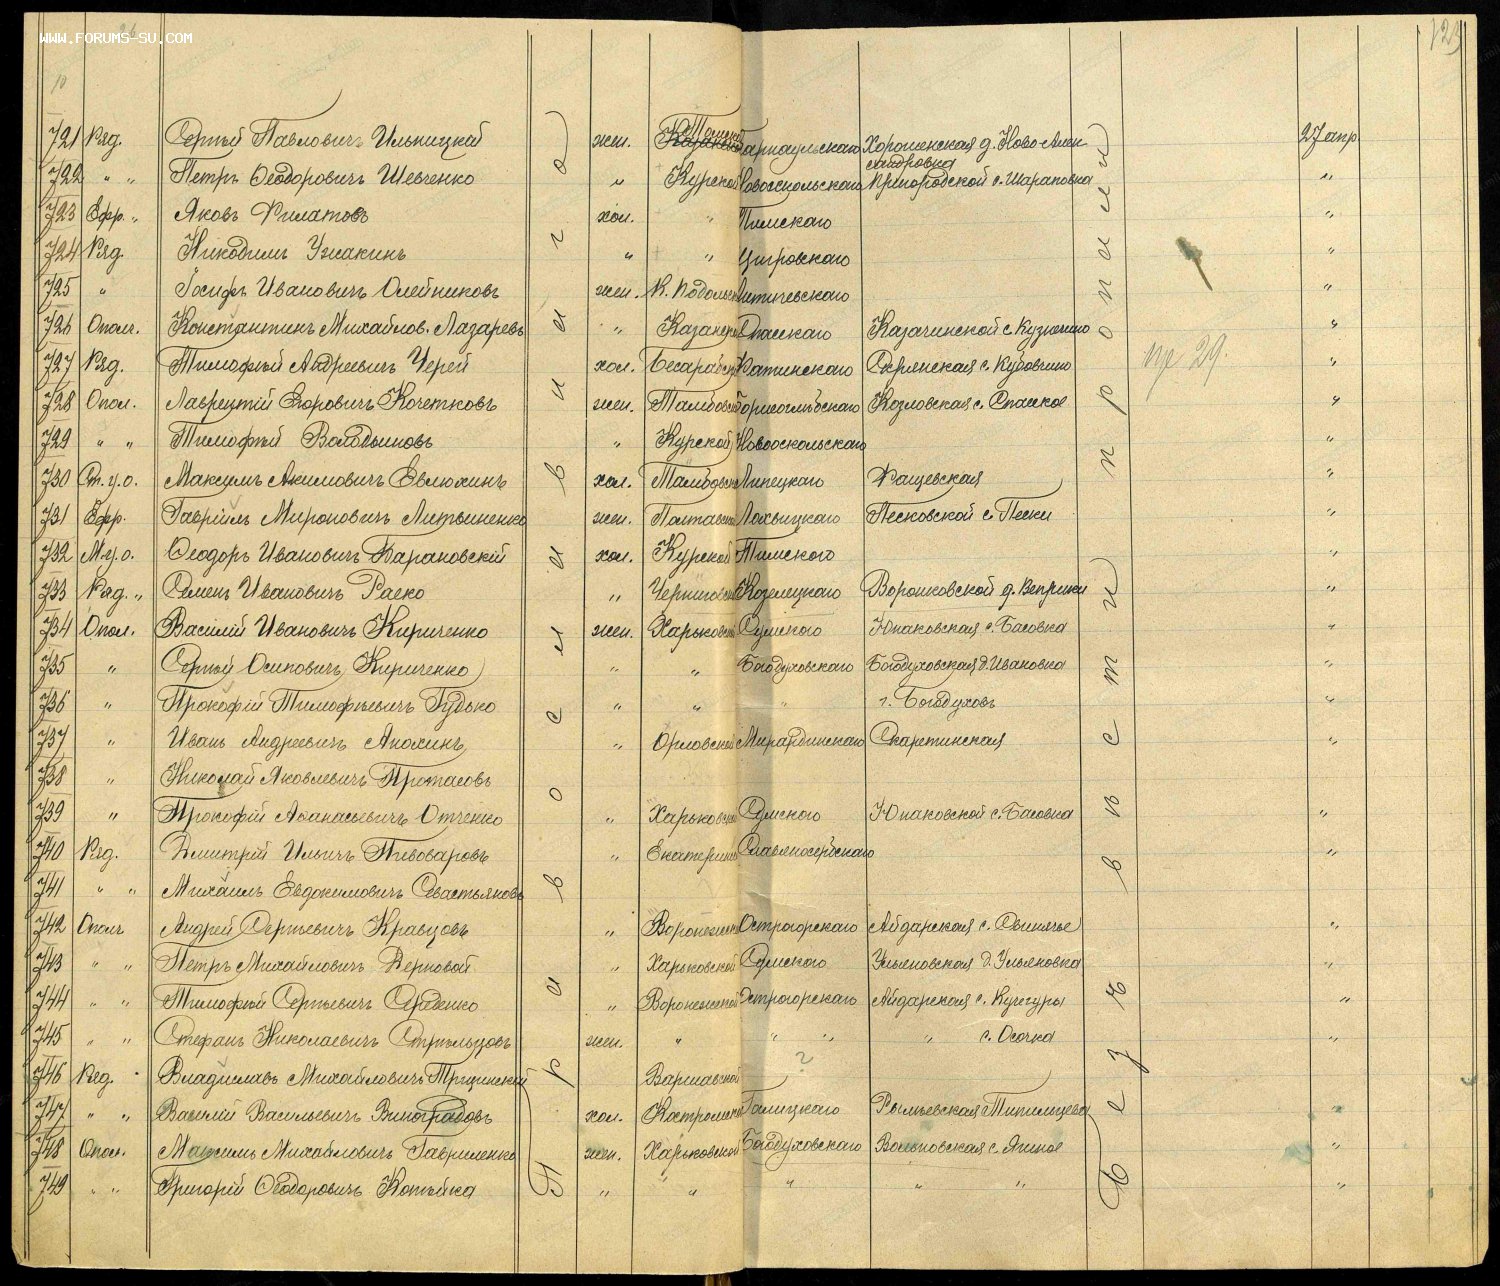 WWW.FORUMS-SU.COM
123
721 Ряд. Сергѣй Павловичъ Ильницкій жен. Томской Барнаульскаго Хорошенская д. Ново-Алек- 27 апр.
сандровка
722 " " Петръ Ѳеодоровичъ Шевченко " Курской Новооскольскаго Пригородской с. Шараповка "
723 Ефр. " Яковъ Филатовъ хол. " Тимскаго "
724 Ряд. Никодимъ Ужакинъ " " Щигровскаго "
725 " Іосифъ Ивановичъ Олейниковъ жен. К. Подольск. Литичевскаго "
726 Ополч. Константинъ Михайлов. Лазаревъ " Казанской Спасскаго Казачинской с. Кузнечино "
727 Ряд. Тимофѣй Андреевичъ Черей хол. Бесарабск. Хотинскаго с. "
728 Опол. Лаврентій Егоровичъ Кочетковъ жен. Тамбовской Борисоглѣбскаго Козловская с. Спасское "
729 " " Тимофѣй " Курской Новооскольскаго "
730 Ст. у. о. Максимъ Акимовичъ Евлюхинъ хол. Тамбовской Липецкаго Фащевская "
731 Ефр. Гавріилъ Мироновичъ Литвиненко жен. Полтавской Лохвицкаго Песковской с. Пески "
732 М. у. о. Ѳеодоръ Ивановичъ Барановскій хол. Курской Тимского "
733 Ряд. " Семенъ Ивановичъ Раско " Черниговской Козелецкаго Воронковской д. Веприки "
734 Опол. Василій Ивановичъ Кириченко жен. Харьковской Сумского Юнаковская с. Басовка "
735 " Сергѣй Осиповичъ Кириченко " " Богодуховскаго Богодуховская д. Ивановка "
736 " Прокофій Тимофѣевичъ Гудько " " " г. Богодуховъ "
737 " Иванъ Андреевичъ Анохинъ " Орловской Скарятинская "
738 " Николай Яковлевичъ Протасовъ
739 " Прокофій Аѳанасьевичъ Отченко " Харьковской Сумского Юнаковской с. Басовка "
740 Ряд. Дмитрій Ильичъ Пивоваровъ " Екатерин. Славяносербскаго "
741 " " Михаилъ Евдокимовичъ Севастьяновъ
742 Ополч. Андрей Сергѣевичъ Кравцовъ " Воронежской Острогорскаго Айдарская с. "
743 " " Петръ Михайловичъ Дерновой " Харьковской Сумского Ульяновская д. Ульяновка "
744 " " Тимофѣй Сергѣевичъ Середенко " Воронежской Острогорскаго Айдарская с. Кучегуры "
745 " " Стефанъ Николаевичъ Стрѣльцовъ жен. " " " " с. Осочка "
746 Ряд. Владиславъ Михайловичъ Варшавской ? "
747 " " Василій Васильевичъ Виноградовъ хол. Костромской Галицкаго "
748 Опол. Максимъ Михайловичъ Гавриленко жен. Харьковской Богодуховскаго Вольновская с. Ямное "
749 " " Григорій Ѳеодоровичъ Котѣйка " " " " " "
Православнаго
Безъ вѣсти пропали
пр 29.